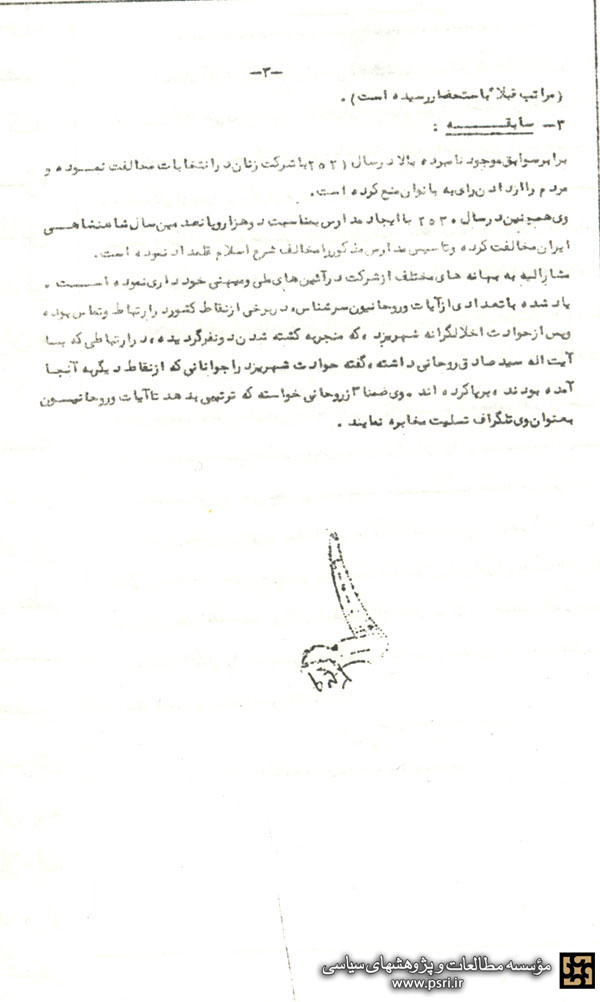 -۳-
(مراتب قبلا" باستحضار رسیده است) .
۳- سابقه :
برابر سوابق موجود نامبرده بالا در سال ۲۵۲۱ با شرکت زنان در انتخابات مخالفت نموده و
مردم را از دادن رای به بانوان منع کرده است .
وی همچنین در سال ۲۵۳۰ با ایجاد مدارس بمناسبت دو هزار و پانصدمین سال شاهنشاهی
ایران مخالفت کرده و تاسیس مدارس مذکور را مخالف شرع اسلام قلمداد نموده است .
مشارالیه به بهانه های مختلف از شرکت در آئین های ملی و میهنی خودداری نموده است .
یاد شده با تعدادی از آیات و روحانیون سرشناس، در برخی از نقاط کشور در ارتباط و تماس بوده
و پس از حوادث اخلالگرانه شهر یزد، که منجر به کشته شدن دو نفر گردیده، در ارتباطی که بسا
آیت اله سید صادق روحانی داشته، گفته حوادث شهر یزد را جوانانی که از نقاط دیگر به آنجا
آمده بودند ، برپا کرده اند . وی ضمنا ۳ از روحانی خواسته که ترتیبی بدهد تا آیات و روحانیسون
بعنوان وی تلگراف تسلیت مخابره نمایند .
مؤسسه مطالعات و پژوهشهای سیاسی
www.psri.ir